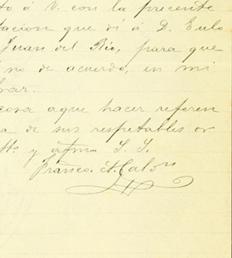 to á V. con la presente
tacion que di á D. Eulo
Juan del Rio, para que
no de acuerdo, en mi
brar.
cosa aque hacer referen
a de sus respetables or
y S. S.
Franco. A. Calvo